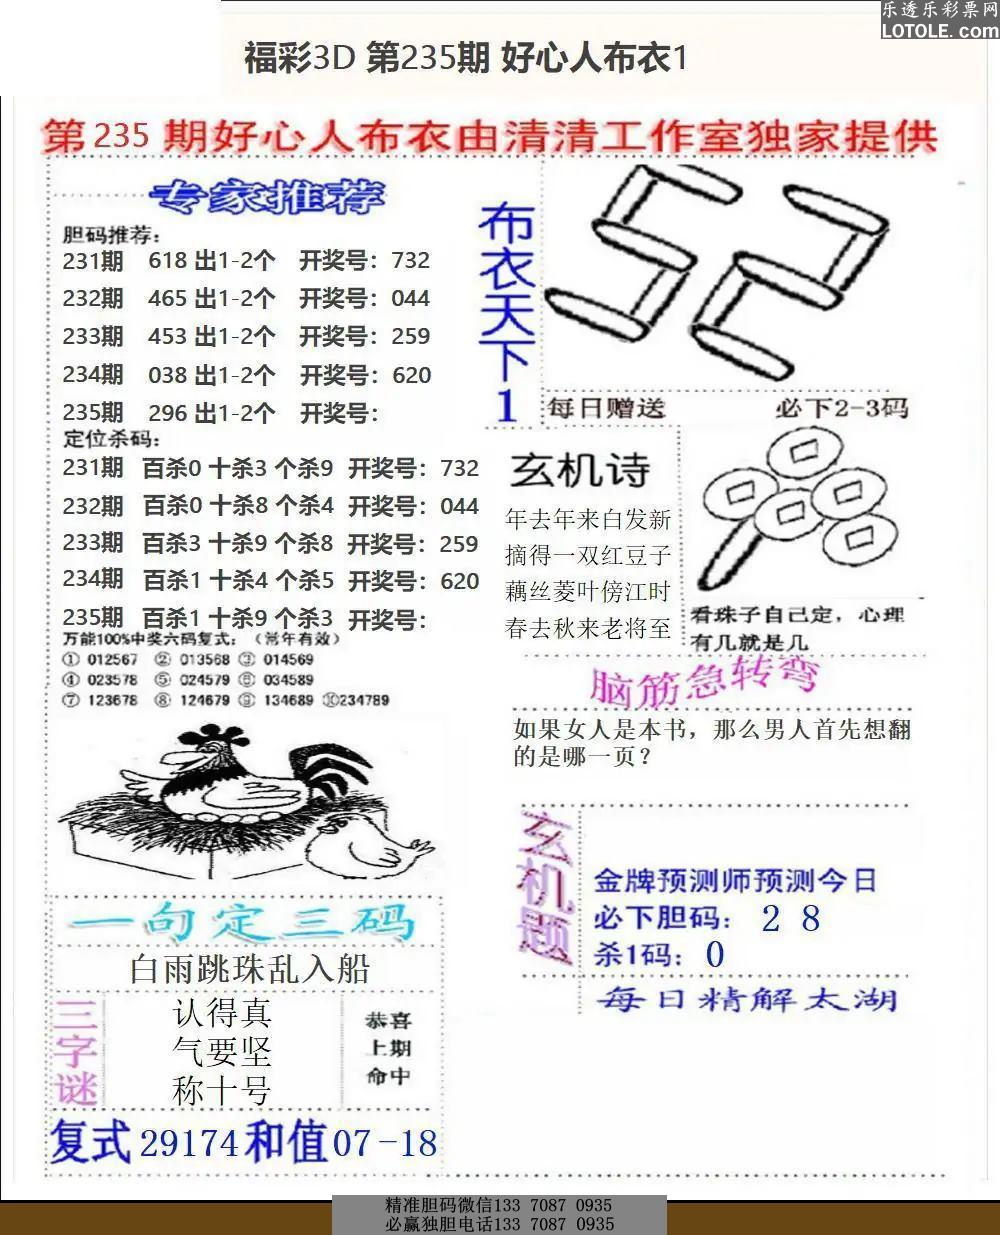 乐透乐彩票网
LOTOLE.com
福彩3D 第235期 好心人布衣1
第235期好心人布衣由清清工作室独家提供
专家推荐
胆码推荐：
231期 618 出1-2个 开奖号：732
232期 465 出1-2个 开奖号：044
233期 453 出1-2个 开奖号：259
234期 038 出1-2个 开奖号：620
235期 296 出1-2个 开奖号：
定位杀码：
231期 百杀0 十杀3 个杀9 开奖号：732
232期 百杀0 十杀8 个杀4 开奖号：044
233期 百杀3 十杀9 个杀8 开奖号：259
234期 百杀1 十杀4 个杀5 开奖号：620
235期 百杀1 十杀9 个杀3 开奖号：
万能100%中奖六码复式：（常年有效）
① 012567 ② 013568 ③ 014569
④ 023578 ⑤ 024579 ⑥ 034589
⑦ 123678 ⑧ 124679 ⑨ 134689 ⑩234789
一句定三码
白雨跳珠乱入船
三字谜
认得真
气要坚
称十号
恭喜
上期
命中
复式 29174 和值 07-18
布衣天下1
52
每日赠送 必下2-3码
玄机诗
年去年来白发新
摘得一双红豆子
藕丝菱叶傍江时
春去秋来老将至
看珠子自己定，心理
有几就是几
脑筋急转弯
如果女人是本书，那么男人首先想翻
的是哪一页？
玄机题
金牌预测师预测今日
必下胆码： 2 8
杀1码： 0
每日精解太湖
精准胆码微信133 7087 0935
必赢独胆电话133 7087 0935